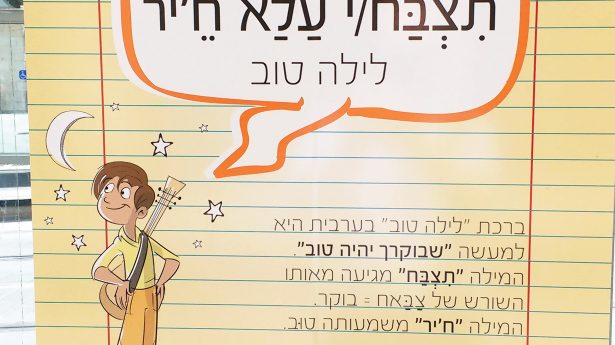 תִצְבַּח/י עַלַא חֵ׳יר
לילה טוב
ברכת "לילה טוב" בערבית היא
למעשה "שבוקרך יהיה טוב".
המילה "תִצְבַּח" מגיעה מאותו
השורש של צַבַּאח = בוקר.
המילה "ח׳יר" משמעותה טוּב.